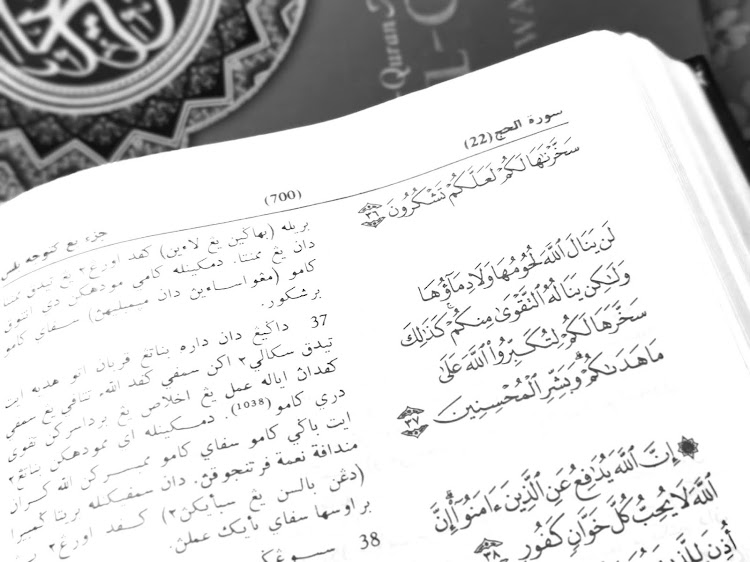 -Quran
L-Q
WA
سورة الحج (22)
(700)
جزء يڠ كتوجه بلس
سَخَّرْنَٰهَا لَكُمْ لَعَلَّكُمْ تَشْكُرُونَ ٣٦
لَن يَنَالَ ٱللَّهَ لُحُومُهَا وَلَا دِمَآؤُهَا
وَلَٰكِن يَنَالُهُ ٱلتَّقْوَىٰ مِنكُمْ ۚ كَذَٰلِكَ
سَخَّرَهَا لَكُمْ لِتُكَبِّرُوا۟ ٱللَّهَ عَلَىٰ
مَا هَدَىٰكُمْ ۗ وَبَشِّرِ ٱلْمُحْسِنِينَ ٣٧
۞ إِنَّ ٱللَّهَ يُدَٰفِعُ عَنِ ٱلَّذِينَ ءَامَنُوٓا۟ ۗ إِنَّ
ٱللَّهَ لَا يُحِبُّ كُلَّ خَوَّانٍ كَفُورٍ ٣٨
أُذِنَ لِلَّذِينَ
بريله (بهاڬين يڠ لاءين) كڤد اورڠ٢ يڠ تيدق ممنتا
دان يڠ ممنتا. دمكينله كامي مودهكن دي اونتوق
كامو (مڠواساءيڽ دان مڽمبليهڽ) سڤاي كامو
برشكور.
37 داڬيڠ دان داره بناتڠ قربان اتو هديه ايت
تيدق سكالي٢ اكن سمڤي كڤد الله، تتاڤي يڠ سمڤي
كڤداڽ اياله عمل يڠ اخلاص يڠ برداسركن تقوى
دري كامو (1038). دمكينله اي ممودهكن بناتڠ٢
ايت باڬي كامو سڤاي كامو ممبسركن الله كران
مندافة نعمة ڤرتنجوقڽ. دان سمڤيكنله بريتا ڬمبيرا
(دڠن بالسن يڠ سباءيك٢ڽ) كڤد اورڠ٢ يڠ
براوسها سڤاي باءيك عملڽ.
38 سسوڠڬوهڽ